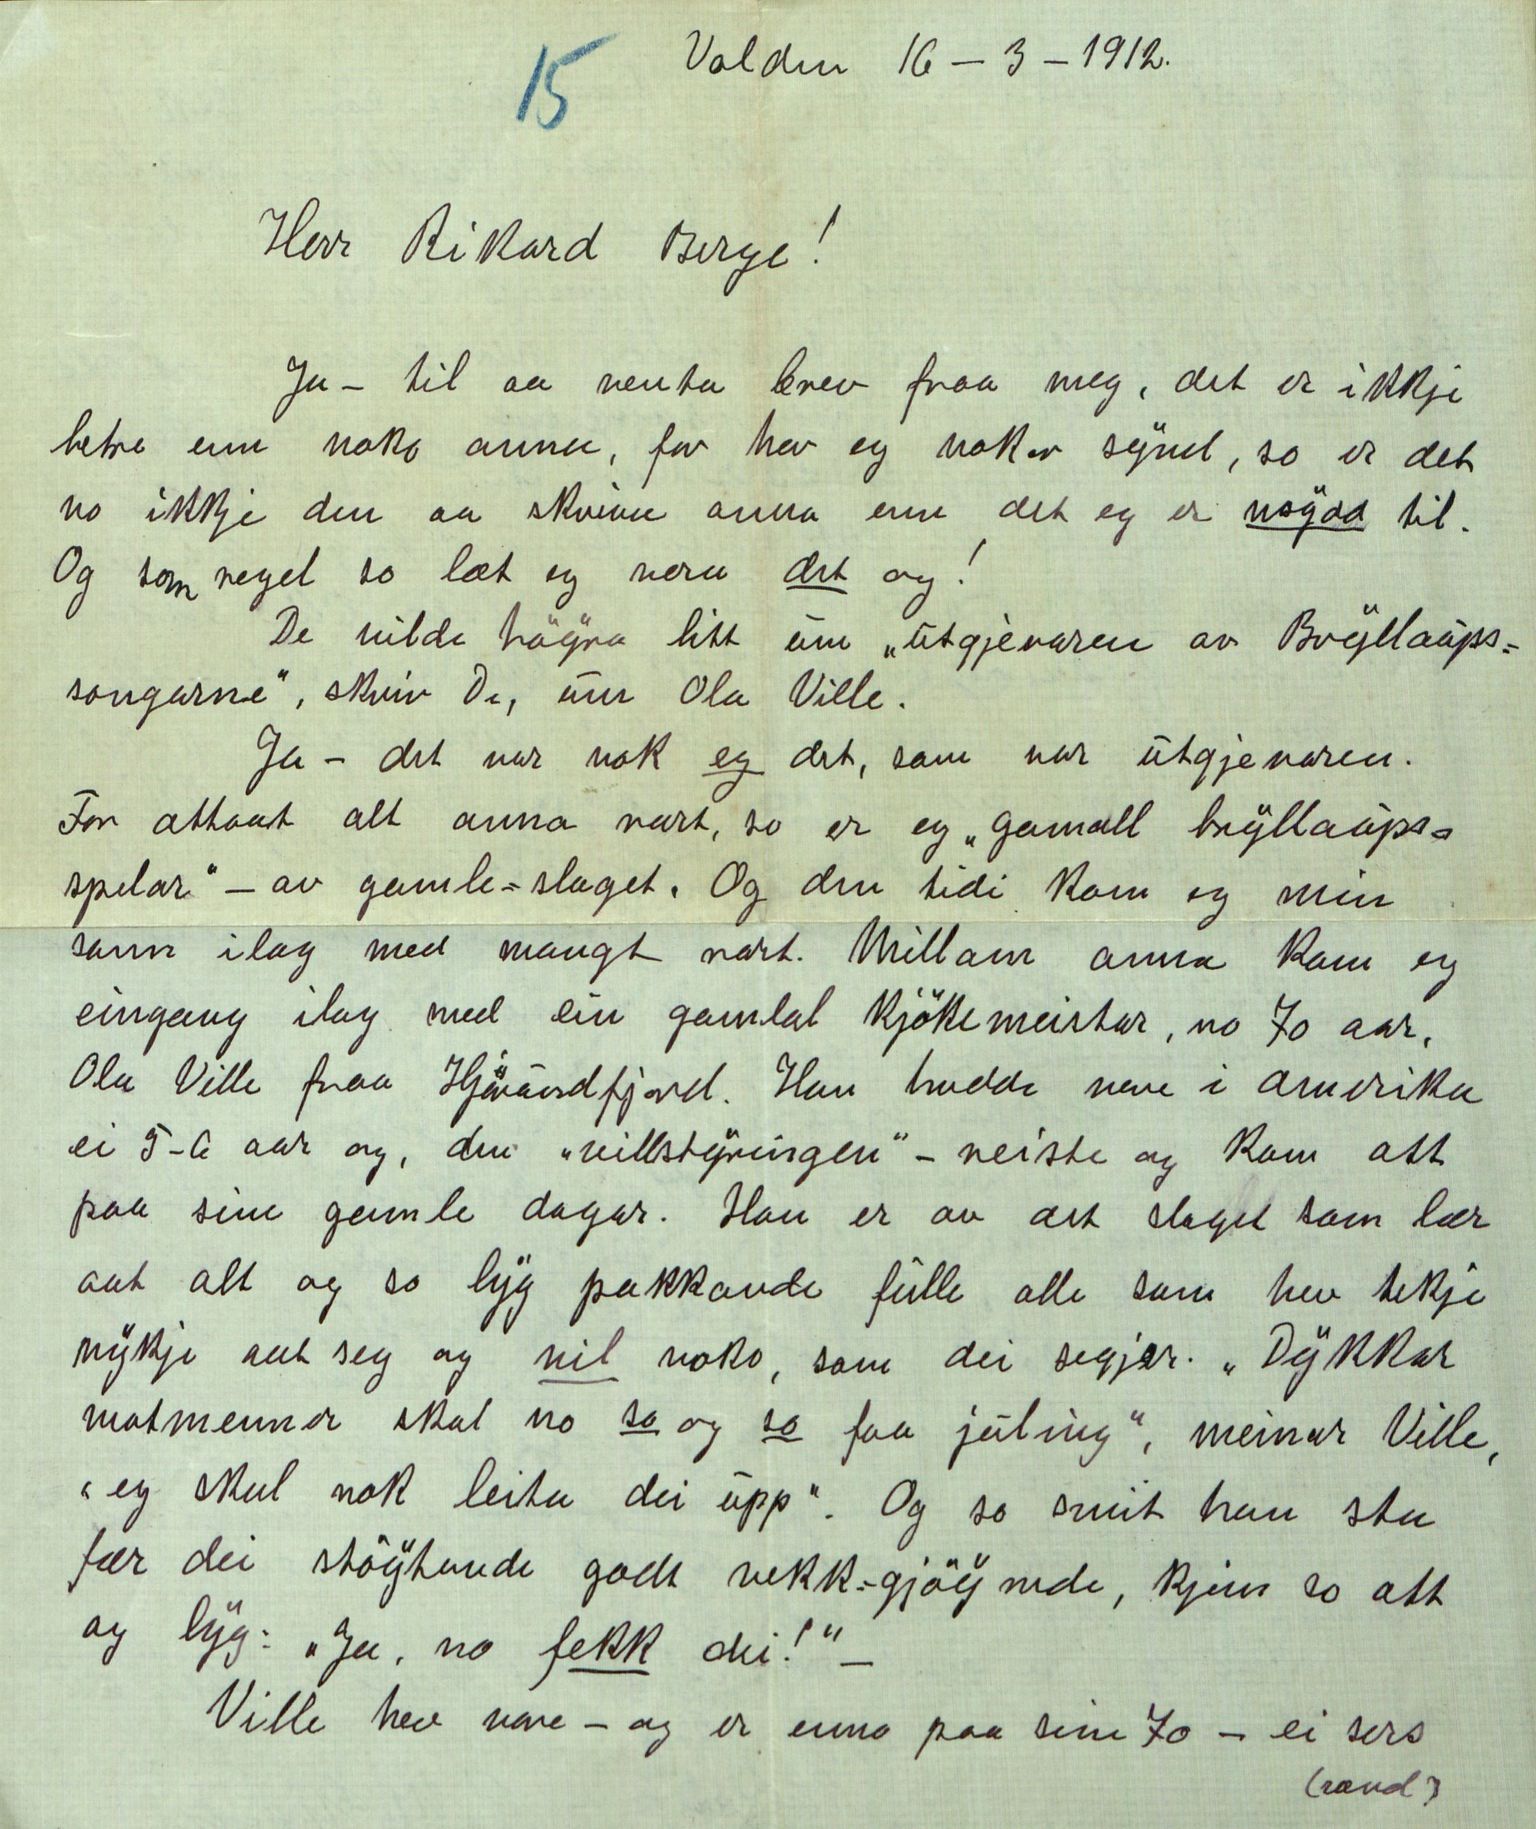 15
Volden 16 – 3 – 1912.
Herr Rikard Berge!
Ja – til aa venta brev fraa meg, det er ikkje
betre enn noko anna, for hev eg nokor synd, so er det
no ikkje den aa skriva anna enn det eg er nöydd til.
Og som regel so læt eg vera det og!
De vilde höyra litt um „utgjevaren av Bryllaups-
songarne", skriv De, um Ola Ville.
Ja – det var nok eg det, som var utgjevaren.
For attaat alt anna rart, so er eg „gamall bryllaups-
spelar" – av gamle-slaget. Og den tidi kom eg min
sann ilag med mangt rart. Millom anna kom eg
eingang ilag med ein gamlal kjökemeistar, no 70 aar,
Ola Ville fraa Hjörundfjord. Han hadde vore i Amerika
ei 5-6 aar og, den „villstyringen" – reiste og kom att
paa sine gamle dagar. Han er av det slaget som lær
aat alt og so lyg pakkande fulle alle som hev tekje
mykje aat seg og vil noko, som dei segjer. „Dykkar
motmenner skal no so og so faa juling", meinar Ville,
„eg skal nok leita dei upp". Og so smit han sta
fær dei stöytande godt vekk-gjöymde, kjem so att
og lyg: „Ja, no fekk dei!" –
Ville hev vore – og er enno paa sine 70 – ei sers
(vend)